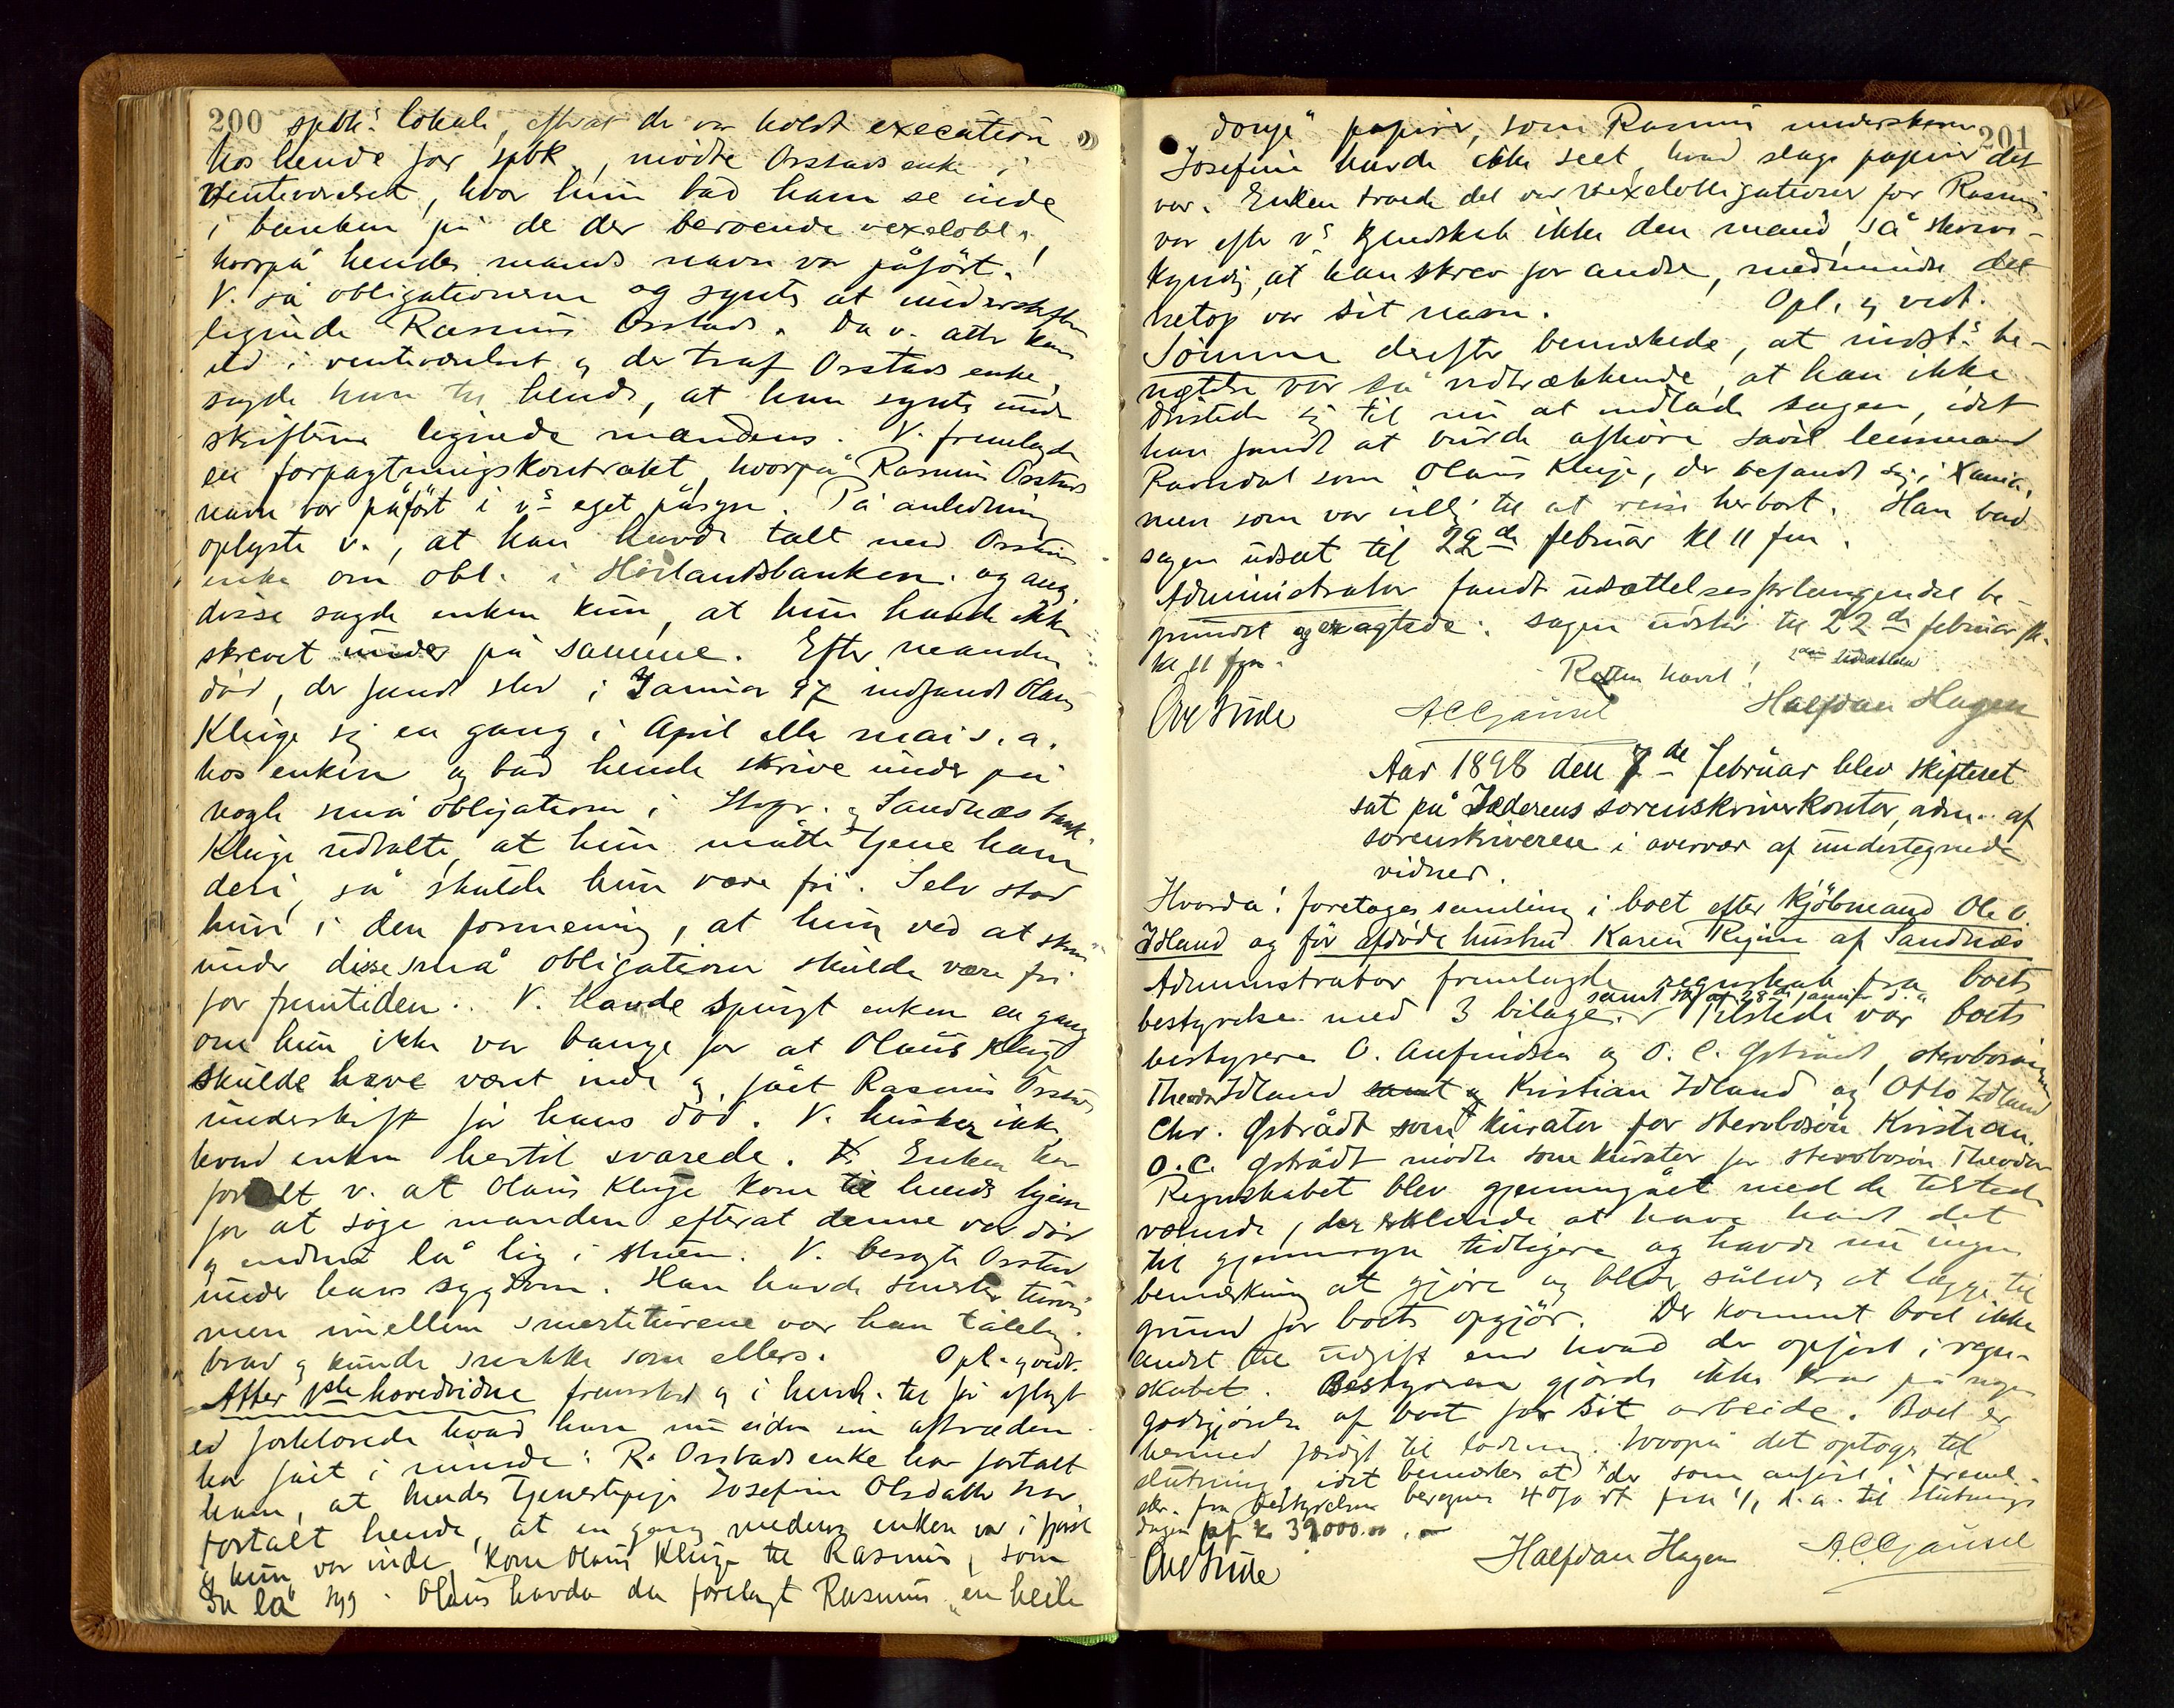 200
spbk.s lokale, efterat der var holdt execution
hos hende for spbk., mødte Orstads enke i
Venteværelset, hvor hun bad ham se inde
i banken på de der beroende vexelobl.,
hvorpå hendes mands navn var påført.
V. så obligationerne og syntes at underskriften
lignede Rasmus Orstads. Da v. atter kom
ud i venteværelset og der traf Orstads enke,
sagde han til hende, at han syntes under
skriften lignede mandens. V. fremlagde
en forpagtningskontrakt, hvorpå Rasmus Orstads
navn var påført i v.s eget påsyn. På anledning
oplyste v., at han havde talt med Orstads
enke om obl. i Høilandsbanken. og ang.
disse sagde enken kun, at hun havde ikke
skrevet under på samme. Efter mandens
død, der fandt sted i Januar 97 indfandt Olaus
Kluge sig en gang i April eller mai s. a.
hos enken og bad hende skrive under på
nogle små obligationer i Stvgr. og Sandnæs bank.
Kluge udtalte, at hun måtte tjene ham
deri, så skulde hun være fri. Selv stod
hun i den formening, at hun ved at skrive
under disse små obligationer skulde være fri
for fremtiden. V. Havde spurgt enken en gang
om hun ikke var bange for at Olaus Kluge
skulde have været inde og fået Rasmus Orstads
underskrift før hans død. V. husker ikke,
hvad enken hertil svarede. Enken har
fortalt v. at Olaus Kluge kom til hendes hjem
for at søge manden efterat denne var død
og endnu lå lig i stuen. V. besøgte Orstad
under hans sygdom. Han havde smerter
men imellem smerteturene var han tålelig
brav og kunde snakke som ellers. Opl. og vedt.
Atter 1ste hovedvidne fremstod og i henh. til før aflagt
ed forklarede hvad han nu siden sin aftræden
har fået i minde: R. Orstads enke har fortalt
ham, at hendes tjenestepige Josefine Olsdatter har
fortalt hende, at en gang medens enken var i fjøset
og hun var inde, kom Olaus Kluge til Rasmus, som
da lå syg. Olaus havde da forelagt Rasmus "en heile
201
donge" papirer, som Rasmus underskrev
Josefine havde ikke seet, hvad slags papirer det
var. Enken troede det var vexelobligationer for Rasmus
var efter v.s kjendskab ikke den mand, så skrive-
kyndig, at han skrev for andre, medmindre det
netop var sit navn. Opl. og vedt.
Sømme derefter bemærkede, at indst.s be-
nægtelse var så vidtrækkende, at han ikke
dristede sig til nu at indlade sagen, idet
han fandt at burde afhøre såvel lensmand
Ravndal som Olaus Kluge, der befandt sig i Xania,
men som var villig til at reise herbort. Han bad
sagen udsat til 22de februar kl 11 fm.
Administrator fandt udsættelsesforlangendet be-
grundet og eragtede: sagen udstår til 22de februar
kl 11 fm.
Retten hævet!
A C Gjausel Halfdan Hagen
Aar 1898 den 7de februar blev skifteret
sat på Jæderens sorenskriverkontor, adm. af
sorenskriveren i overvær af undertegnede
vidner.
Hvorda: foretoges samling i boet efter kjøbmand Ole O.
Idland og før afdøde hustru Karen Regine af Sandnæs
Administrator fremlagde regnskab fra boets
samt skr. af 28de januar d. a.
bestyrelse med 3 bilage. Tilstede var boets
bestyrere O. Aufindsen og O. C. Østrådt, stervbosønnerne
Theodor Idland samt og Kristian Idland og Otto Idland
Chr. Østrådt som kurator for stervbosøn Kristian.
O. C. Østrådt mødte som kurator for stervbosøn Theodor
Regnskabet blev gjennemgået med de tilstede
værende, der erklærede at have havt det
til gjennemsyn tidligere og havde nu ingen
bemærkning at gjøre og blev således at lægge til
grund for boets opgjør. Der kommer boet ikke
andet til udgift end hvad der opført i regn-
skabet. Bestyrerne gjorde ikke krav på nogen
godtgjørelse af boet for sit arbeide. Boet er
hermed færdigt til lodning. Hvorpå det optoges til
slutning idet bemærkes at der som anført i freml.
skr. fra bestyrelsen beregnes 4% rt. fra 1/1 d. a. til slutnings
dagen af kr 39000.00.
Halfdan Hagen A C Gjausel